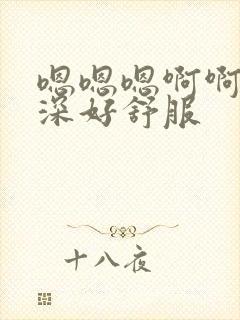 嗯嗯嗯啊啊
深好舒服
十八夜